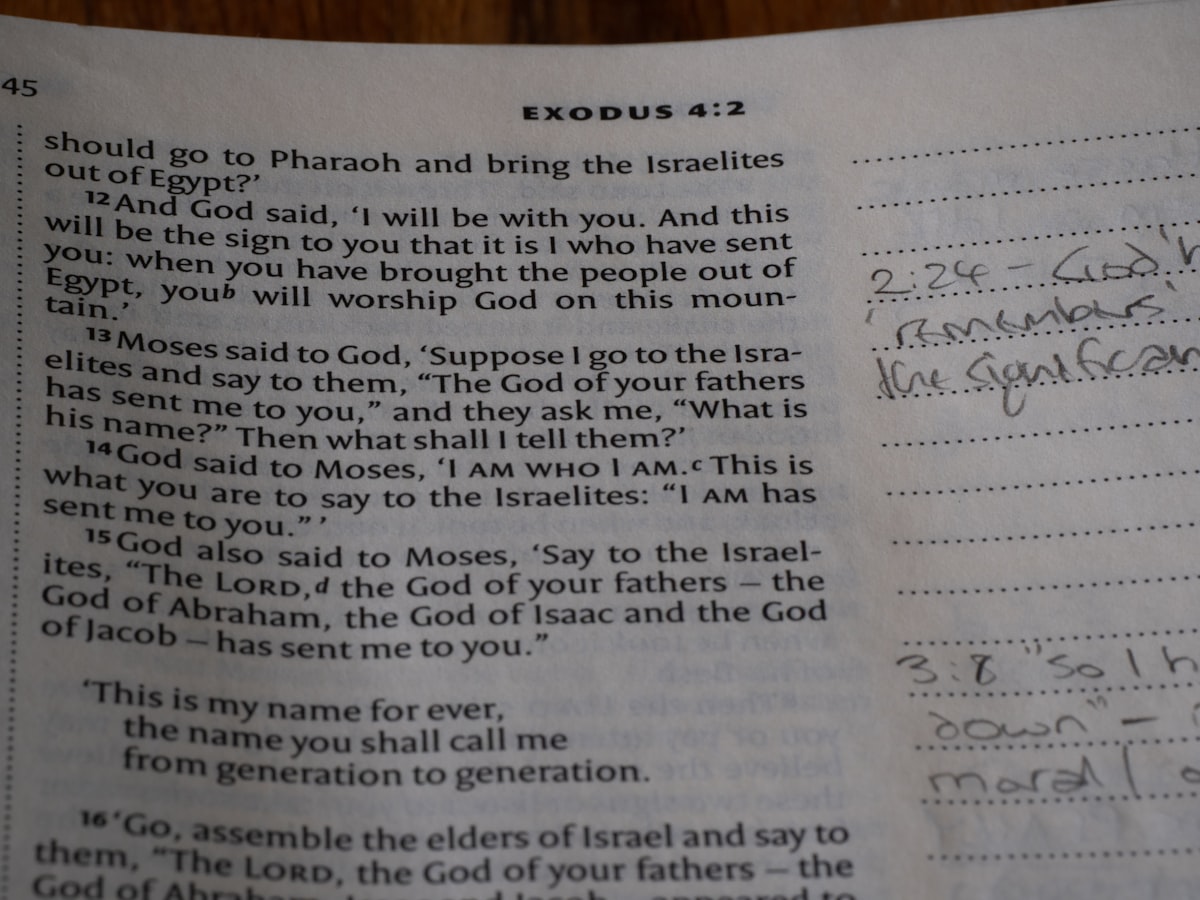 45
EXODUS 4:2
should go to Pharaoh and bring the Israelites
out of Egypt?’
12 And God said, ‘I will be with you. And this
will be the sign to you that it is I who have sent
you: when you have brought the people out of
Egypt, youb will worship God on this moun-
tain.’
13 Moses said to God, ‘Suppose I go to the Isra-
elites and say to them, “The God of your fathers
has sent me to you,” and they ask me, “What is
his name?” Then what shall I tell them?’
14 God said to Moses, ‘I AM WHO I AM.c This is
what you are to say to the Israelites: “I AM has
sent me to you.” ’
15 God also said to Moses, ‘Say to the Israel-
ites, “The LORD,d the God of your fathers – the
God of Abraham, the God of Isaac and the God
of Jacob – has sent me to you.”
‘This is my name for ever,
the name you shall call me
from generation to generation.
16 ‘Go, assemble the elders of Israel and say to
them, “The LORD, the God of your fathers – the
God of Abraham, Isaac and Jacob – appeared to
2:24 - God
'remembers'
the significan
3:8 "So I h
down" -
moral /